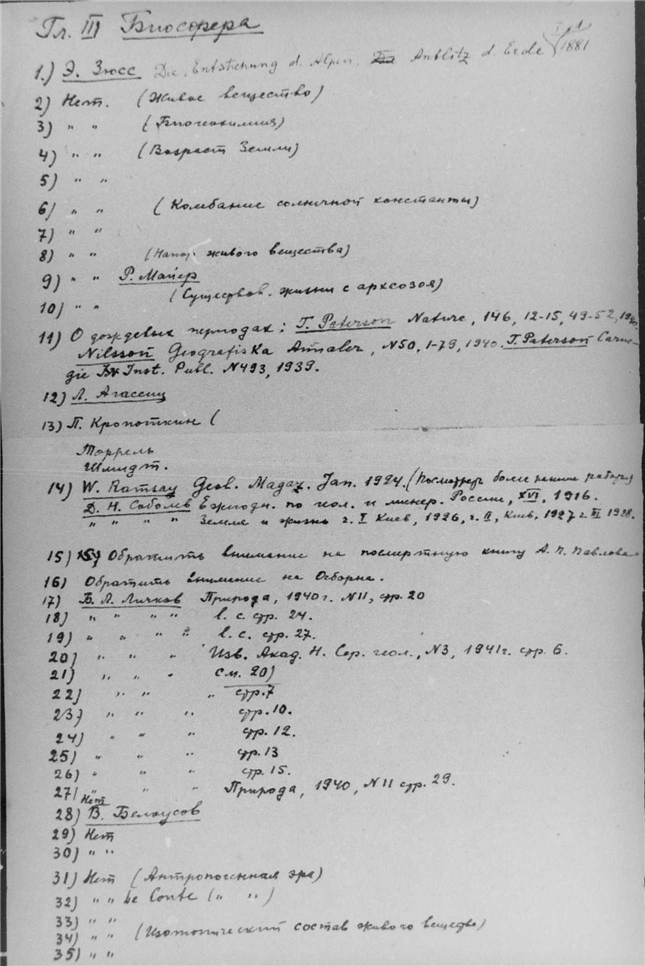 Гл. III Биосфера
1.) Э. Зюсс Die Entstehung d. Alpen. Antlitz d. Erde 1881
2) Нет. (Живое вещество)
3) " " (Биогеохимия)
4) " " (Возраст Земли)
5) " "
6) " " (Колебание солнечной константы)
7) " "
8) " " (Напор живого вещества)
9) " " Р. Майер
10) " " (Существов. жизни с архозоя)
11) О дождевых периодах: T. Paterson Nature, 146, 12-15, 49-52, 1940.
Nilsson Geografiska Annaler, N50, 1-79, 1940. T. Paterson Carne-
gie Inst. Publ. N493, 1939.
12) Л. Агассиц
13) П. Кропоткин (
Торрель
Шмидт.
14) W. Ramsay Geol. Magaz. Jan. 1924. (Посмотреть более ранние работы)
Д. Н. Соболев Ежегодн. по геол. и минер. России, XVI, 1916.
" " " " Земля и жизнь ч. I Киев, 1926, ч. II, Киев, 1927 г. III 1928.
15) Обратить внимание на посмертную книгу А. П. Павлова
16) Обратить внимание на Осборна.
17) Б. Л. Личков Природа, 1940г. N11, стр. 20
18) " " " " l. c. стр. 24.
19) " " " " l. c. стр. 27.
20) " " " Изв. Акад. Н. Сер. геол., N3, 1941г. стр. 6.
21) " " " см. 20)
22) " " " стр. 7
23) " " " стр. 10.
24) " " " стр. 12.
25) " " " стр. 13
26) " " " стр. 15.
27) " " " Природа, 1940, N11 стр. 29.
Нет
28) В. Белоусов
29) Нет
30) " "
31) Нет (Антропогенная эра)
32) " " Le Conte (" ")
33) " "
34) " " (Изотопический состав живого вещества)
35) " "